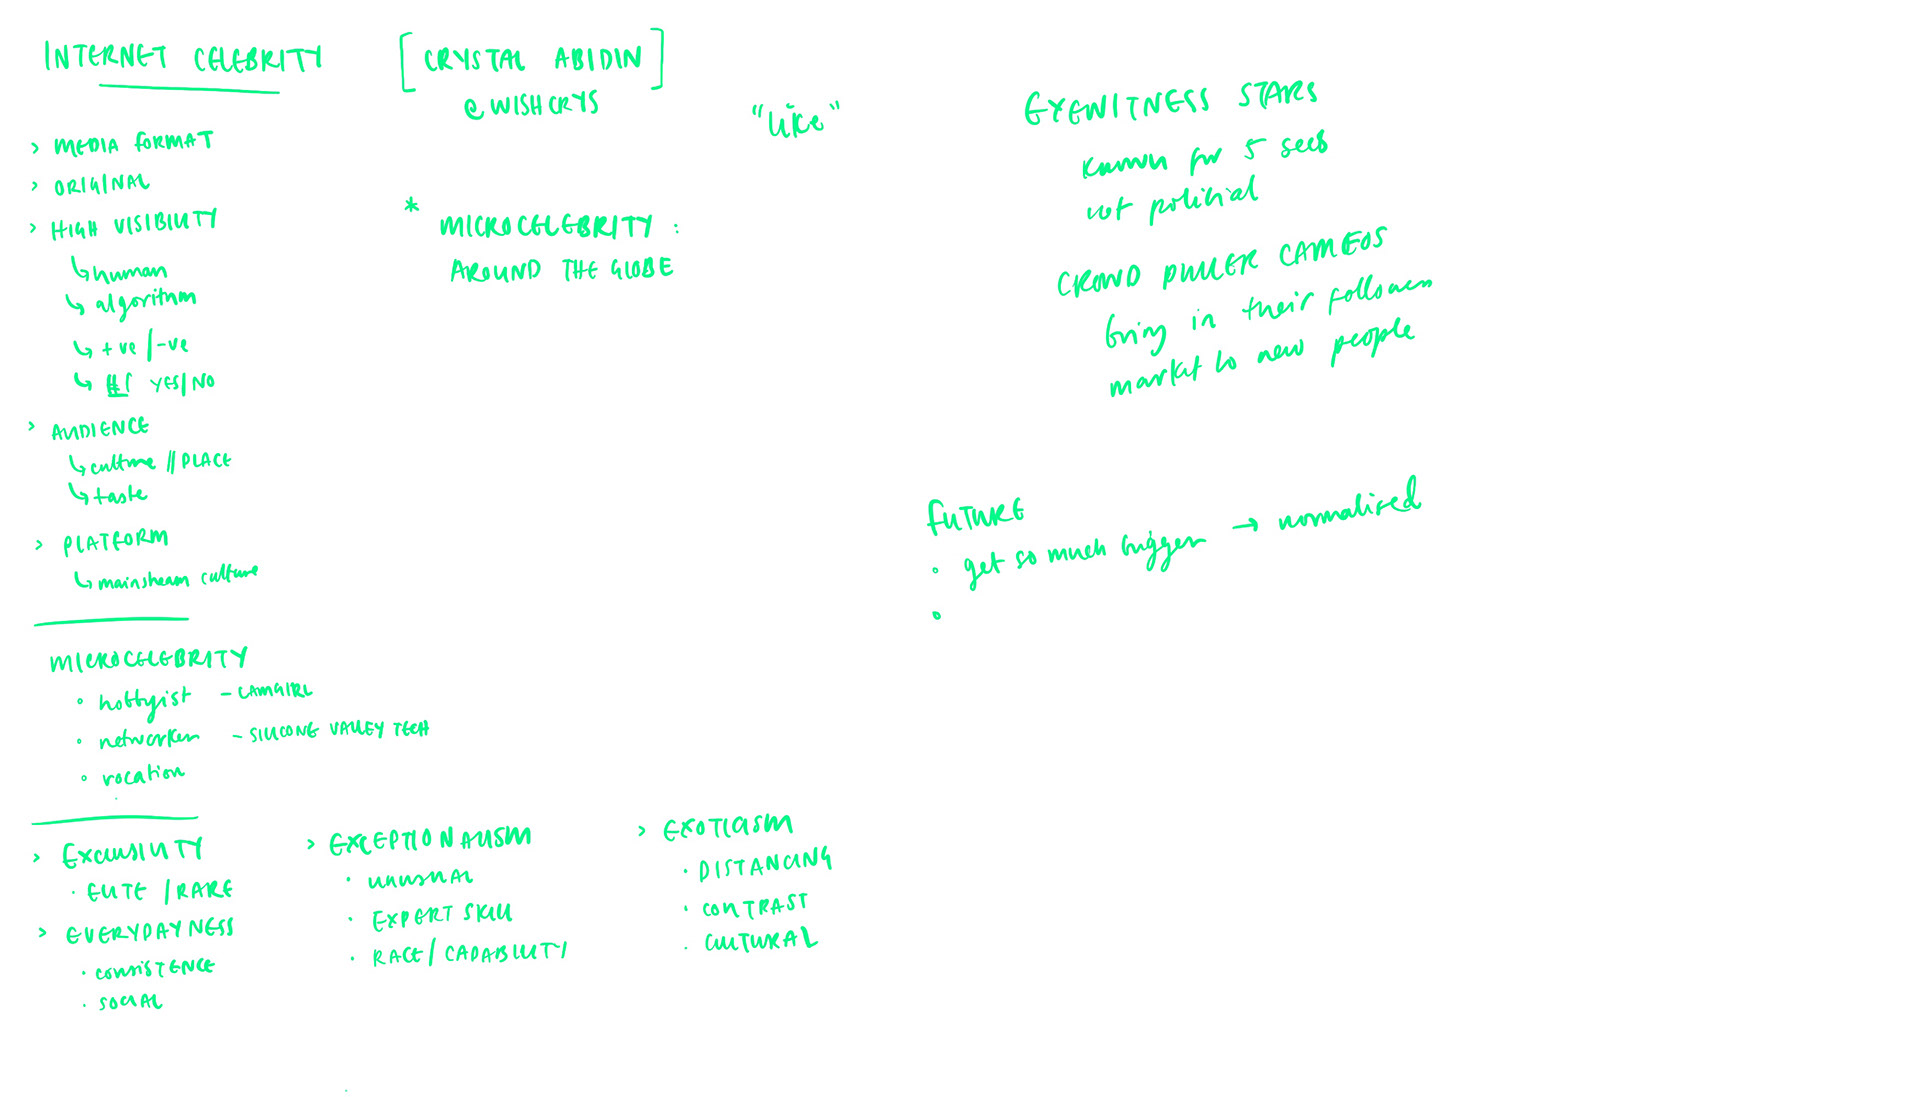 INTERNET CELEBRITY
[CRYSTAL ABIDIN]
@WISHCRYS
"like"
> MEDIA FORMAT
> ORIGINAL
> HIGH VISIBILITY
↳ human
↳ algorithm
↳ +ve/-ve
↳ YES/NO
> AUDIENCE
↳ culture // PLACE
↳ taste
> PLATFORM
↳ mainstream culture
* MICROCELEBRITY:
AROUND THE GLOBE
MICROCELEBRITY
• hobbyist - CAMGIRL
• networker - SILICONE VALLEY TECH
• vocation
> EXCLUSIVITY
• ELITE / RARE
> EVERYDAYNESS
• CONSISTENCE
• SOCIAL
> EXCEPTIONALISM
• UNUSUAL
• EXPERT SKILL
• RACE/CAPABILITY
> EXOTICISM
• DISTANCING
• CONTRAST
• CULTURAL
EYEWITNESS STARS
known for 5 secs
not political
CROWD PULLER CAMEOS
bring in their followers
market to new people
FUTURE
• get so much bigger → normalised
•